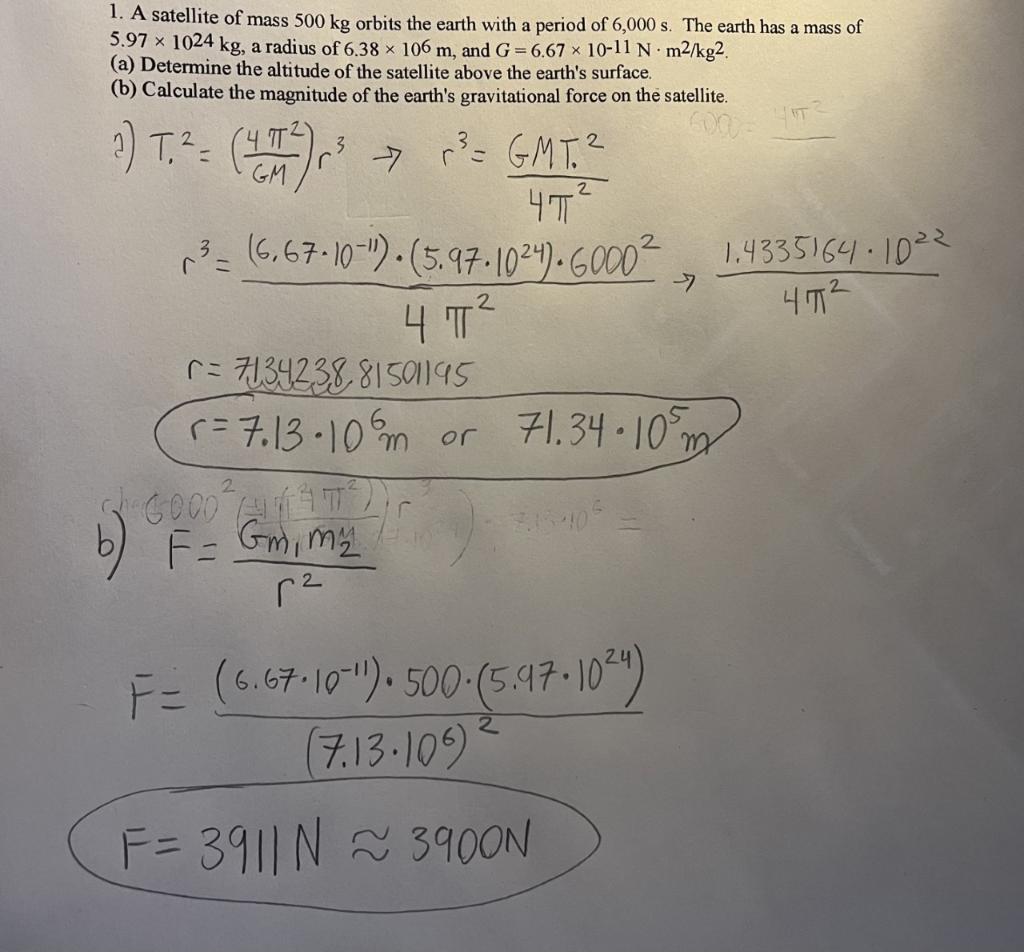 1. A satellite of mass 500 kg orbits the earth with a period of 6,000 s. The earth has a mass of
5.97 × 1024 kg, a radius of 6.38 × 106 m, and G = 6.67 × 10-11 N · m2/kg2.
(a) Determine the altitude of the satellite above the earth's surface.
(b) Calculate the magnitude of the earth's gravitational force on the satellite.
6000= 4π²
a) T.² = (4π²/GM) r³ → r³ = GMT.²/4π²
r³ = (6.67·10⁻¹¹)·(5.97·10²⁴)·6000²/4π² → 1.4335164·10²²/4π²
r = 7134238.81501195
r = 7.13·10⁶m or 71.34·10⁵m
6000² 4π² r³ 7.13·10⁶ =
b) F = Gm₁m₂/r²
F = (6.67·10⁻¹¹)·500·(5.97·10²⁴)/(7.13·10⁶)²
F = 3911N ≈ 3900N